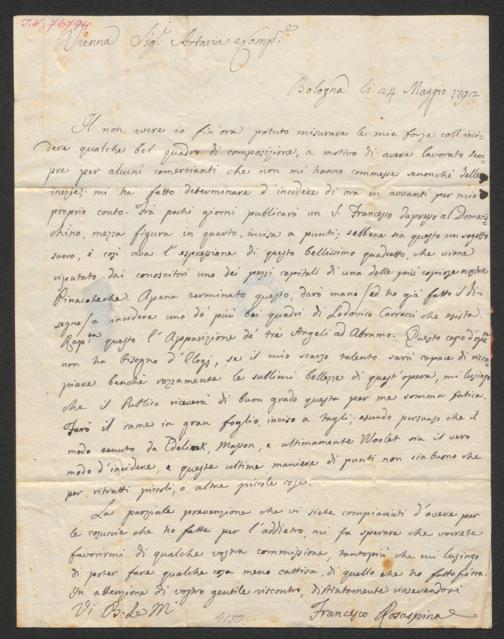 I.N. 76794
Vienna Sig.ri Artaria e Comp.e
Bologna li 24 Maggio 1792
Il non avere io fin'ora potuto misurare le mie forze coll'inci-
dere qualche bel quadro di composizione, a motivo di avere lavorato sem-
pre per alcuni comercianti che non mi hanno commesse sanonchè delle
inezie; mi ha fatto determinare d'incidere di ora in avanti per mio
proprio conto. Fra pochi giorni publicarò un S. Francesco dapresso al Domeni-
chino, mezza figura in quarto, incisa a punti; sebbene sia questo un sogetto
sacro, è così viva l'espressione di questo bellissimo quadretto, che viene
riputato dai conoscitori uno dei pezzi capitali di una delle più copiose nostre
Pinacoteche. Apena terminato questo, darò mano (ed ho già fatto il di-
segno) a incidere uno de più bei quadri di Lodovico Carracci che esista.
Rap.ta questo l'Apparizione de' tre Angeli ad Abramo. Questo capo d'opera
non ha bisogno d'Elogj, se il mio scarso talento sarà capace di ricco-
piare benchè rozzamente le sublimi bellezze di quest'opera, mi lusingo
che il Publico riceverà di buon grado questa per me somma fatica.
Farò il rame in gran foglio, inciso a tagli; essendo persuaso che il
modo tenuto da Edelink, Masson, e ultimamente Woolet sia il vero
modo d'incidere, e queste ultime maniere di punti non sia buono che
per ritratti piccoli, o altre piccole cose.
La parziale prevenzione che vi siete compiaciuti d'avere per
le cosuccie che ho fatte per l'addietro, mi fa sperare che vorrete
favorirmi di qualche vostra commissione, tantopiù che mi lusingo
di poter fare qualche cosa meno cattiva, di quello che ho fatto finora.
In attenzione di vostro gentile riscontro, distintamente riverendovi
Vi B. Le M.i
Francesco Rosaspina
4150